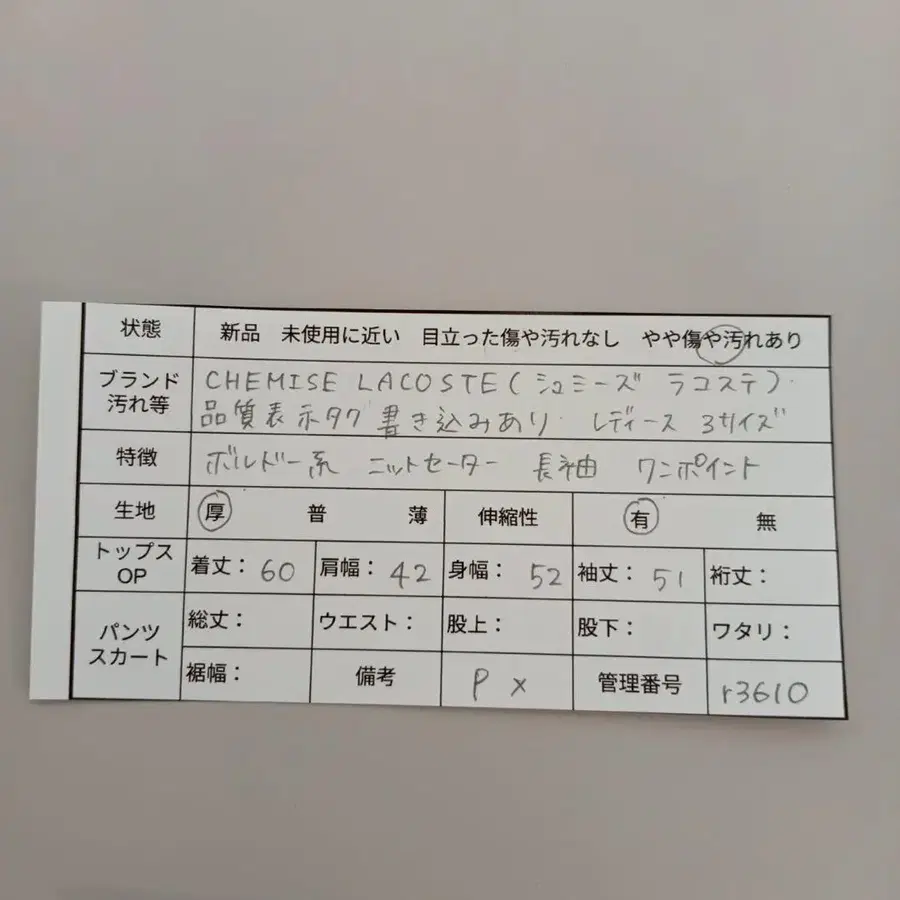 状態 新品 未使用に近い 目立った傷や汚れなし やや傷や汚れあり
ブランド CHEMISE LACOSTE(シュミーズ ラコステ).
汚れ等 品質表示タグ 書き込みあり. レディース 3サイズ
特徴 ボルドー系 ニットセーター 長袖 ワンポイント
生地 厚 普 薄 伸縮性 有 無
トップス OP 着丈: 60 肩幅: 42 身幅: 52 袖丈: 51 裄丈:
パンツ スカート 総丈: ウエスト: 股上: 股下: ワタリ:
裾幅: 備考 P x 管理番号 r3610